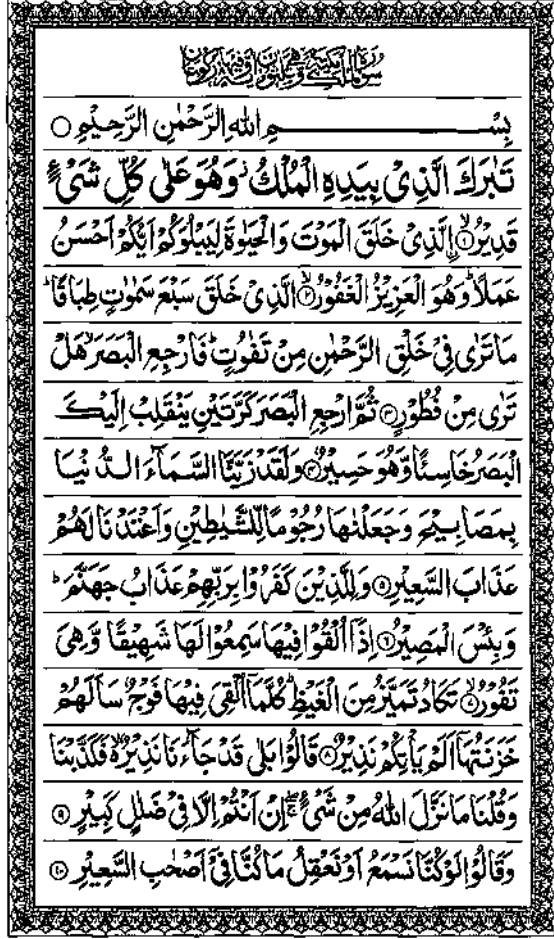 سُوْرَةُ الْمُلْكِ مَكِّيَّةٌ وَّهِيَ ثَلٰثُوْنَ اٰيَةً وَّفِيْهَا رُكُوْعَانِ
بِسْمِ اللهِ الرَّحْمٰنِ الرَّحِيْمِ ○
تَبٰرَكَ الَّذِیْ بِیَدِهِ الْمُلْكُ ۫ وَهُوَ عَلٰی كُلِّ شَیْءٍ
قَدِیْرُۙ۝۱ اِ۟لَّذِیْ خَلَقَ الْمَوْتَ وَالْحَیٰوةَ لِیَبْلُوَكُمْ اَیُّكُمْ اَحْسَنُ
عَمَلًا ؕ وَهُوَ الْعَزِیْزُ الْغَفُوْرُۙ۝۲ الَّذِیْ خَلَقَ سَبْعَ سَمٰوٰتٍ طِبَاقًا ؕ
مَا تَرٰی فِیْ خَلْقِ الرَّحْمٰنِ مِنْ تَفٰوُتٍ ؕ فَارْجِعِ الْبَصَرَ ۙ هَلْ
تَرٰی مِنْ فُطُوْرٍ۝۳ ثُمَّ ارْجِعِ الْبَصَرَ كَرَّتَیْنِ یَنْقَلِبْ اِلَیْكَ
الْبَصَرُ خَاسِئًا وَّهُوَ حَسِیْرٌ۝۴ وَلَقَدْ زَیَّنَّا السَّمَآءَ الدُّنْیَا
بِمَصَابِیْحَ وَجَعَلْنٰهَا رُجُوْمًا لِّلشَّیٰطِیْنِ وَاَعْتَدْنَا لَهُمْ
عَذَابَ السَّعِیْرِ۝۵ وَلِلَّذِیْنَ كَفَرُوْا بِرَبِّهِمْ عَذَابُ جَهَنَّمَ ؕ
وَبِئْسَ الْمَصِیْرُ۝۶ اِذَاۤ اُلْقُوْا فِیْهَا سَمِعُوْا لَهَا شَهِیْقًا وَّهِیَ
تَفُوْرُۙ۝۷ تَكَادُ تَمَیَّزُ مِنَ الْغَیْظِ ؕ كُلَّمَاۤ اُلْقِیَ فِیْهَا فَوْجٌ سَاَلَهُمْ
خَزَنَتُهَاۤ اَلَمْ یَاْتِكُمْ نَذِیْرٌ۝۸ قَالُوْا بَلٰی قَدْ جَآءَنَا نَذِیْرٌ ۙ فَكَذَّبْنَا
وَقُلْنَا مَا نَزَّلَ اللهُ مِنْ شَیْءٍ ۖۚ اِنْ اَنْتُمْ اِلَّا فِیْ ضَلٰلٍ كَبِیْرٍ۝۹
وَقَالُوْا لَوْ كُنَّا نَسْمَعُ اَوْ نَعْقِلُ مَا كُنَّا فِیْۤ اَصْحٰبِ السَّعِیْرِ۝۱۰